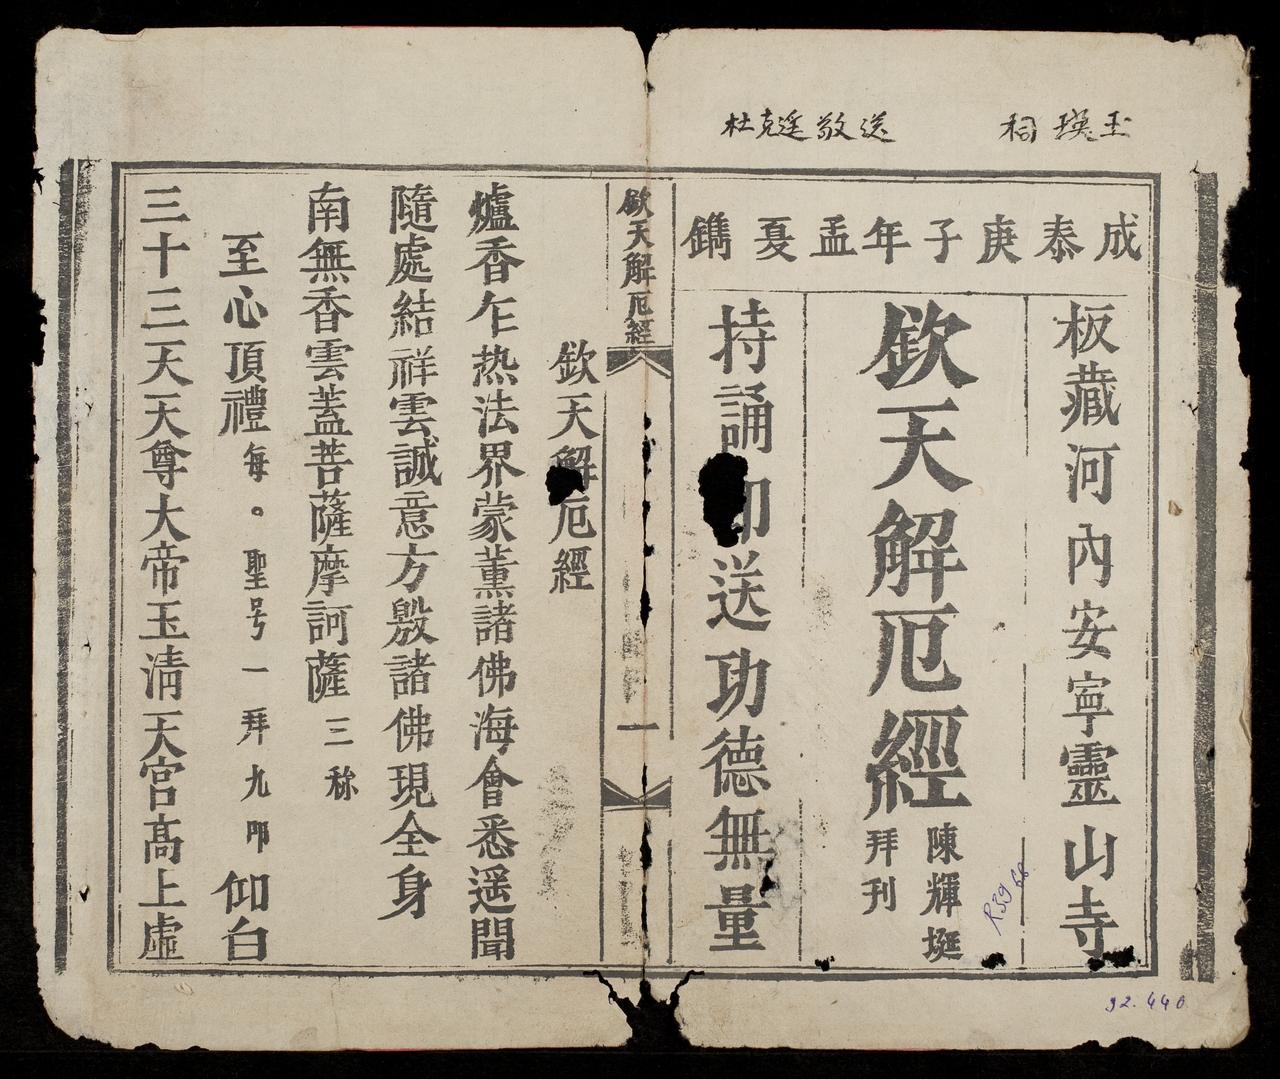 玉瑛祠
杜克遥敬送
成泰庚子年孟夏鐫
板藏河內安寧靈山寺
欽天解厄經
陳輝挻
拜刊
持誦印送功德無量
R.3968
92.440
欽天解厄經
一
欽天解厄經
爐香乍热法界蒙薰諸佛海會悉遥聞
隨處結祥雲誠意方殷諸佛現全身
南無香雲蓋菩薩摩訶薩三称
至心頂禮每。聖号一拜九叩仰白
三十三天天尊大帝玉淸天宮高上虛